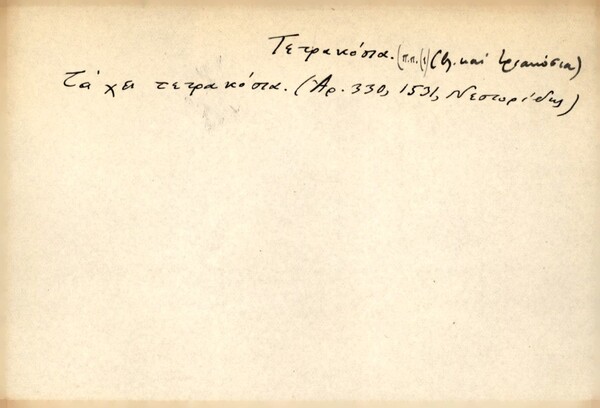 Τετρακόσια. (π.π.) (βλ. καὶ τριακόσια)
Τά χει τετρακόσια. (Ἀρ. 330, 1531, Νεστορίδης)